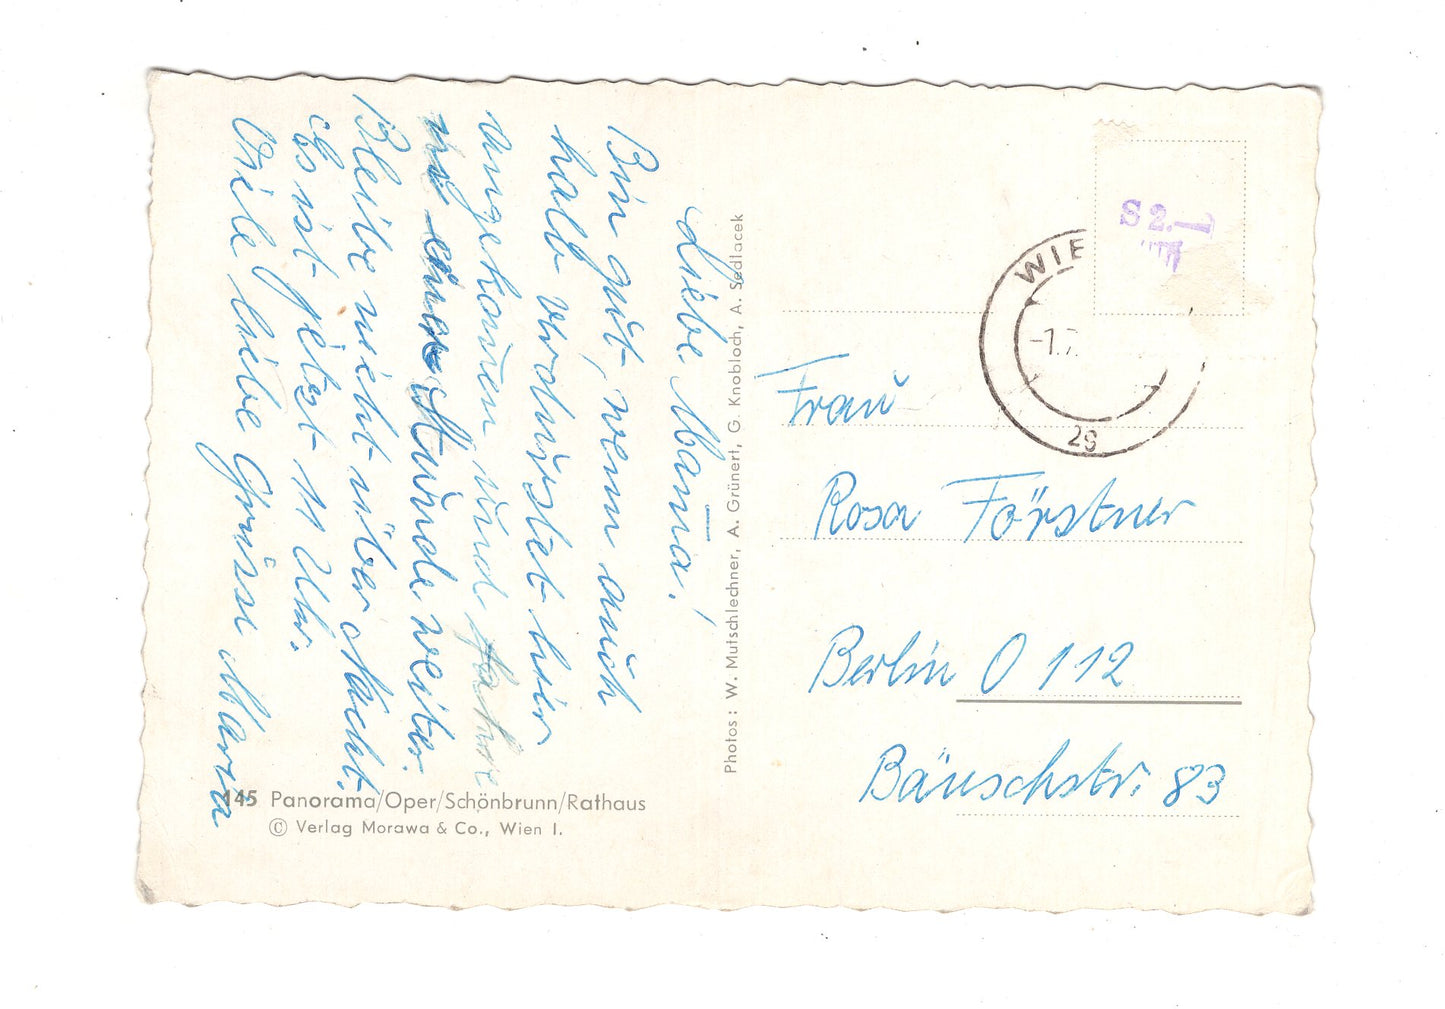 Liebe Mama!
Bin gut, wenn auch
halb verdurstet hier
angekommen und fahre
in einer Stunde weiter.
Bleibe nicht über Nacht.
Es ist jetzt 11 Uhr.
Viele liebe Grüsse Maria
145 Panorama/Oper/Schönbrunn/Rathaus
© Verlag Morawa & Co., Wien I.
Photos: W. Mutschlechner, A. Grünert, G. Knobloch, A. Sedlacek
S 2.-
WIE
-1.7.
Frau
Rosa Förstner
Berlin O 112
Bänschstr. 83